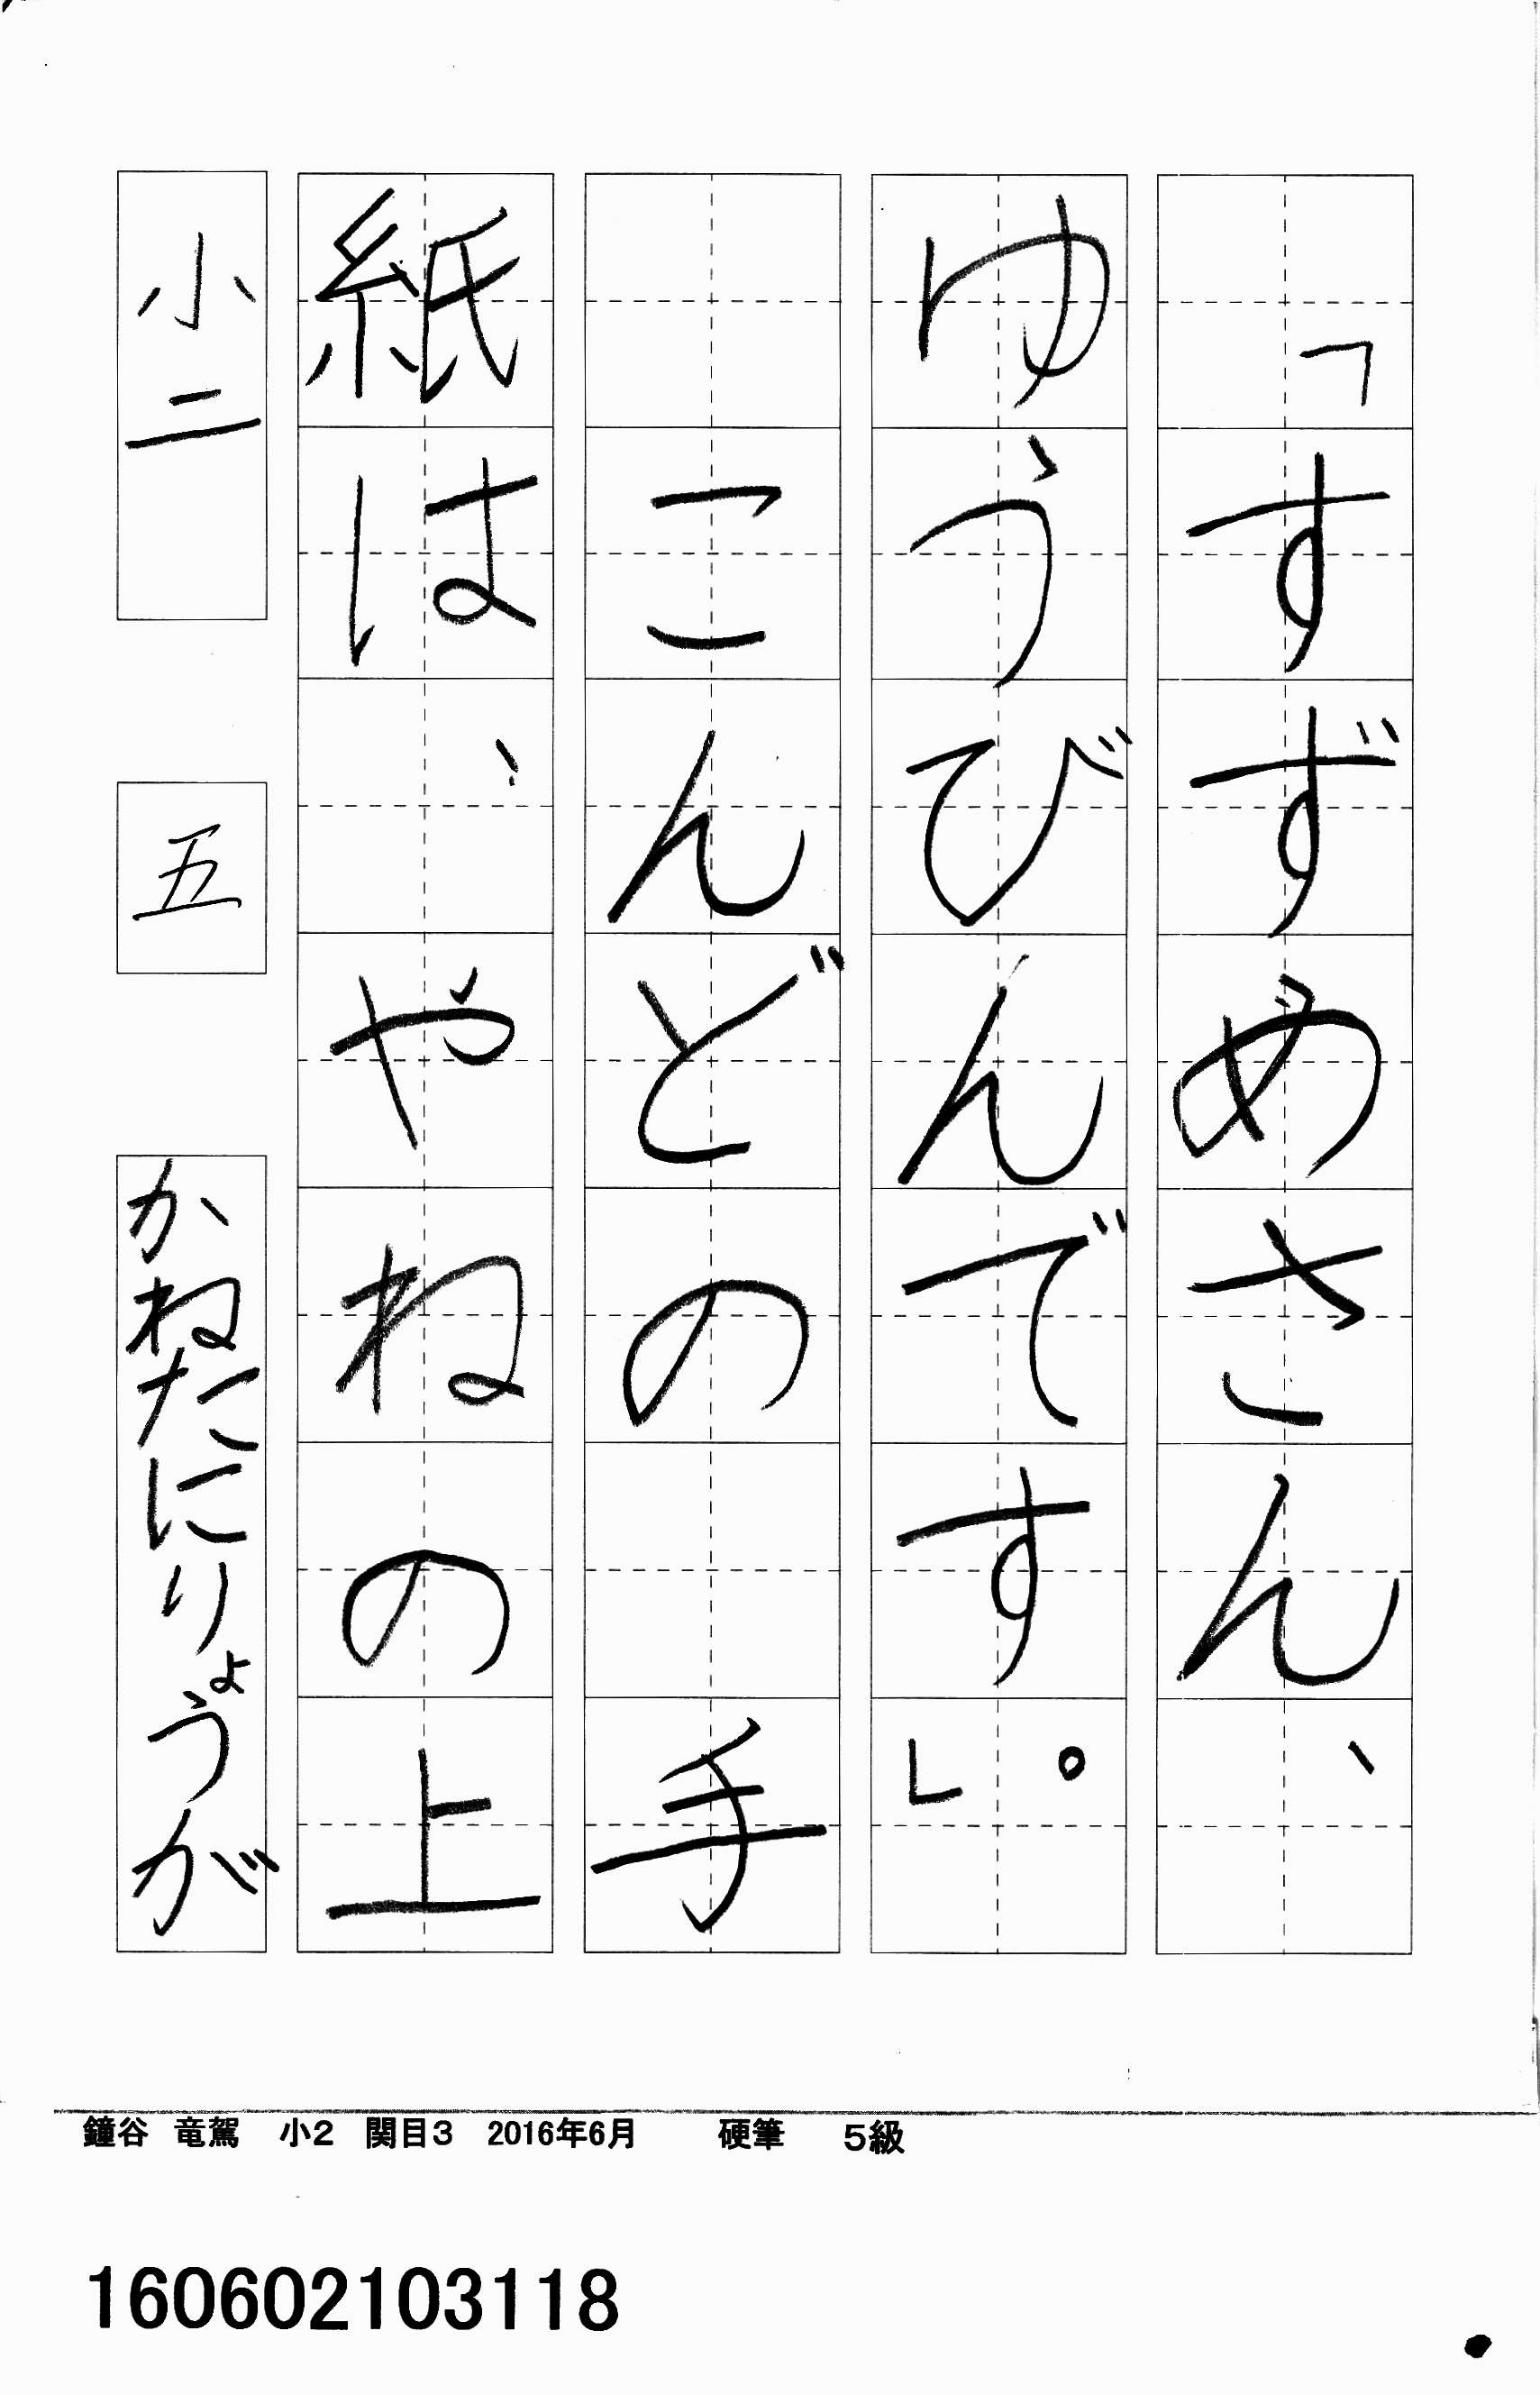 「すずめさん、
ゆうびんです。」
こんどの 手
紙は、やねの上
小二 五 かねたにりょうが
鐘谷 竜駕 小2 関目3 2016年6月 硬筆 5級
160602103118